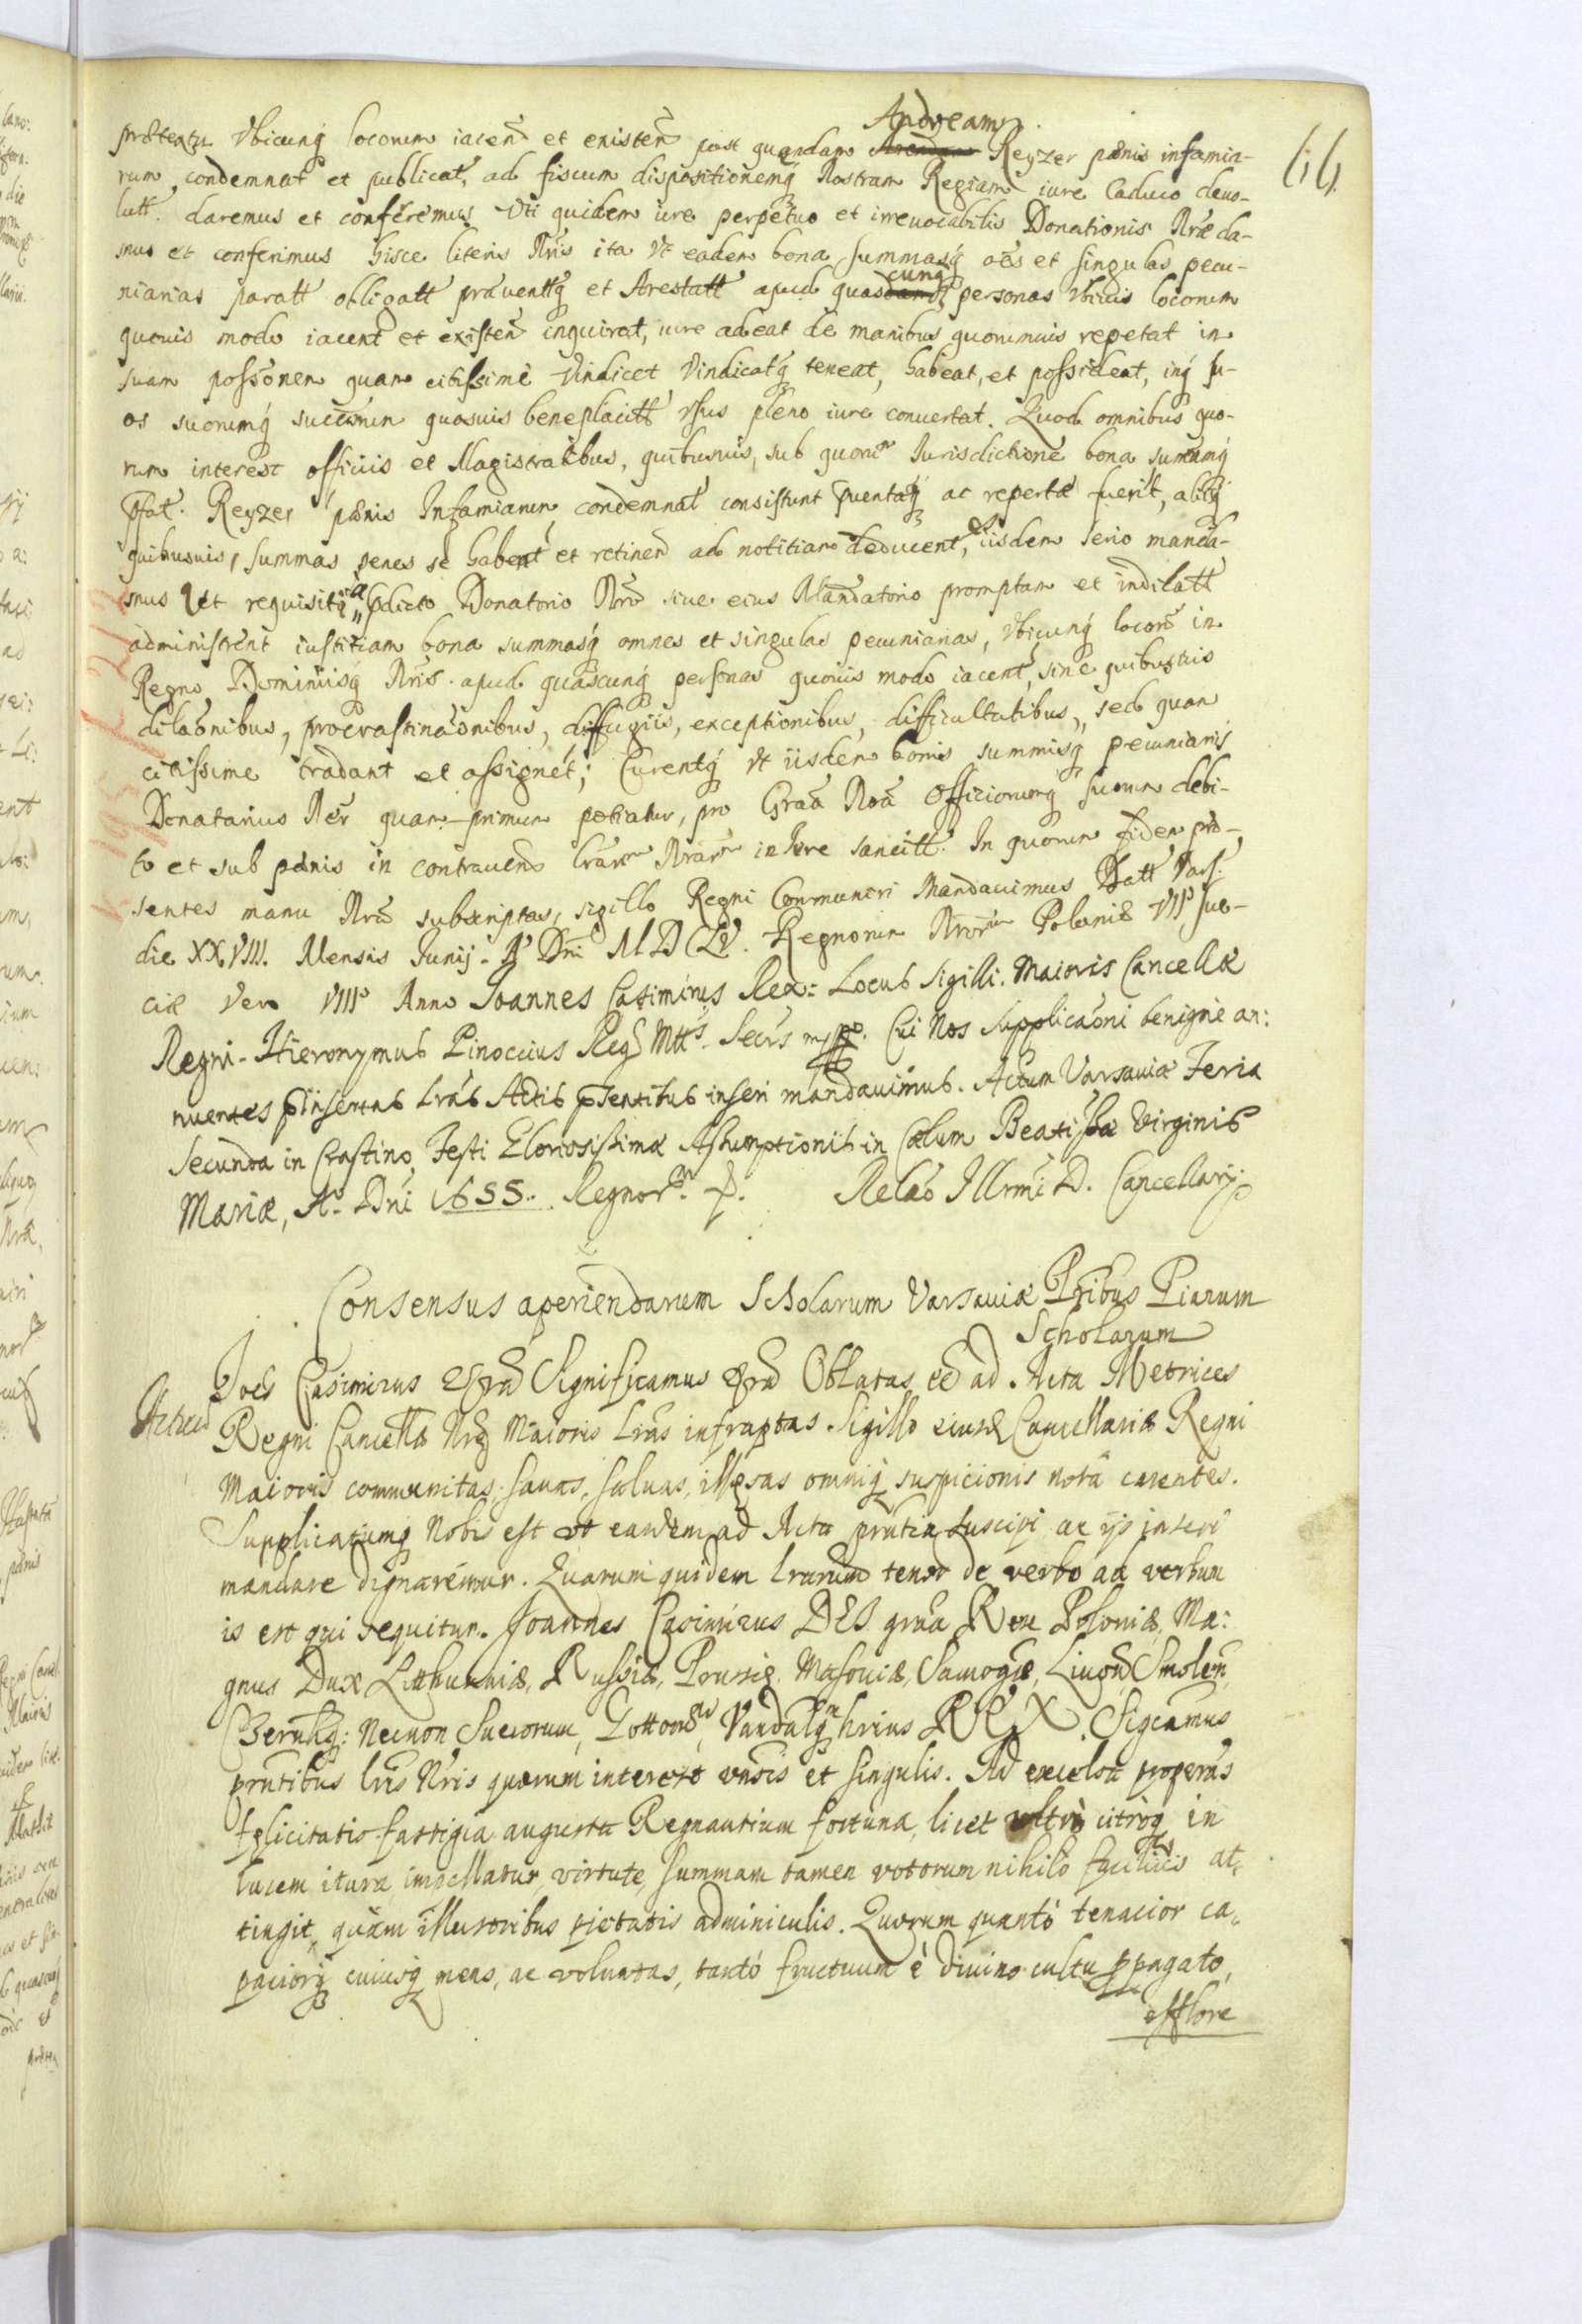 Andream
prætextu Vbicunq locorum iacen et existen post quendam Arendam Reyzer pœnis infamia-
66
rum condemnat et publicat, ad fiscum dispositionemq Nostram Regiam iure Caduco deuo-
lutt. daremus et conferemus Vti quidem iure perpetuo et irreuocabilis Donationis Nræ da-
mus et conferimus hisce literis Nris ita Vt eadem bona summasq oes et singulas pecu-
cunq
niarias paratt obligatt præuenttq et Arestatt apud quasdam personas Vbiuis locorum
quouis modo iacent et existen inquirat, iure adeat de manibus quorumuis repetat in
suam possonem quam citissimè Vindicet Vindicatq teneat, habeat, et possideat, inq su-
os suorumq succrum quosuis beneplacitt Vsus pleno iure conuertat. Quod omnibus quo-
rum interest officiis et Magistratibus, quibusuis, sub quorum Iurisdictione bona summæq
pfat. Reyzer pœnis Infamiarum condemnat consistunt ac repertæ fuerit, aliisq
quibusuis, summas penes se habent et retinen ad notitiam deducent, iisdem serio manda-
mus Vt requisitq a pdicto Donatorio Nro siue eius Mandatorio promptam et indilatt
administrent iustitiam bona summasq omnes et singulas pecuniarias, Vbicunq locor in
Regno Dominiisq Nris apud quascunq personas quouis modo iacent, sine quibusuis
dilaonibus, procrastinaonibus, diffugiis, exceptionibus, difficultatibus, sed quam
citissime tradant et assignét; Curentq Vt iisdem bonis summisq pecuniariis
Donatarius Ner quam primum potiatur, pro Graa Nra Officiorumq suorum debi-
to et sub pœnis in contrauen lrarm Nrarm in Iure sancitt. In quorum fidem præ-
sentes manu Nra subscriptas, sigillo Regni Communiri Mandauimus Datt Vars.
die XXVIII. Mensis Iunij. Ao Dni MDCLV. Regnorum Nrorum Poloniæ VIIo Sue-
ciæ Vero VIIIo Anno Joannes Casimirus Rex: Locus Sigilli. Maioris Cancellæ
Regni. Hieronymus Pinoccius Reg Mttis. Secrs mpp. Cui Nos Supplicaoni benignè an:
nuentes pinsertas Lras Actis psentibus inseri mandauimus. Actum Varsauiæ Feria
Secunda in Crastino Festi Gloriosissimæ Assumptionis in Cælum Beatissæ Virginis
Mariæ, Ao. Dni 1655. Regnorm. p. Relao Illrmi D. Cancellarij
Consensus aperiendarum Scholarum Varsauiæ Pribus Piarum
Scholarum
Joes Casimirus Significamus Oblatas ee ad Acta Metrices
Regni Cancellæ Nræ Maioris Lras infraptas Sigillo eiusd Cancellariæ Regni
Maioris communitas, sanas, saluas, illesas omniq suspicionis notâ carentes.
Supplicatumq Nobis est vt easdem ad Acta prntia suscipi ac ijs inseri
mandare dignaremur. Quarum quidem lrarum tenor de verbo ad verbum
is est qui sequitur. Joannes Casimirus DEI graa Rex Poloniæ, Ma:
gnus Dux Lithuaniæ, Russiæ, Prussiæ, Masouiæ, Samogie, Liuon, Smolen,
Czernihq: Necnon Suecorum, Gottorm, Vandalq hrius REX. Sigcamus
prntibus lris Nris quorum interest vnsis et singulis. Ad excelsa properas
felicitatis fastigia augusta Regnantium fortuna, licet vltrò citròq in
lucem itura impellatur virtute, summam tamen votorum nihilo faciliùs at-
tingit, quàm illustribus pietatis adminiculis. Quorum quantò tenacior ca-
paciorq cuiusq mens, ac voluntas, tantò fructuum è diuino cultu ppagato,
efflore